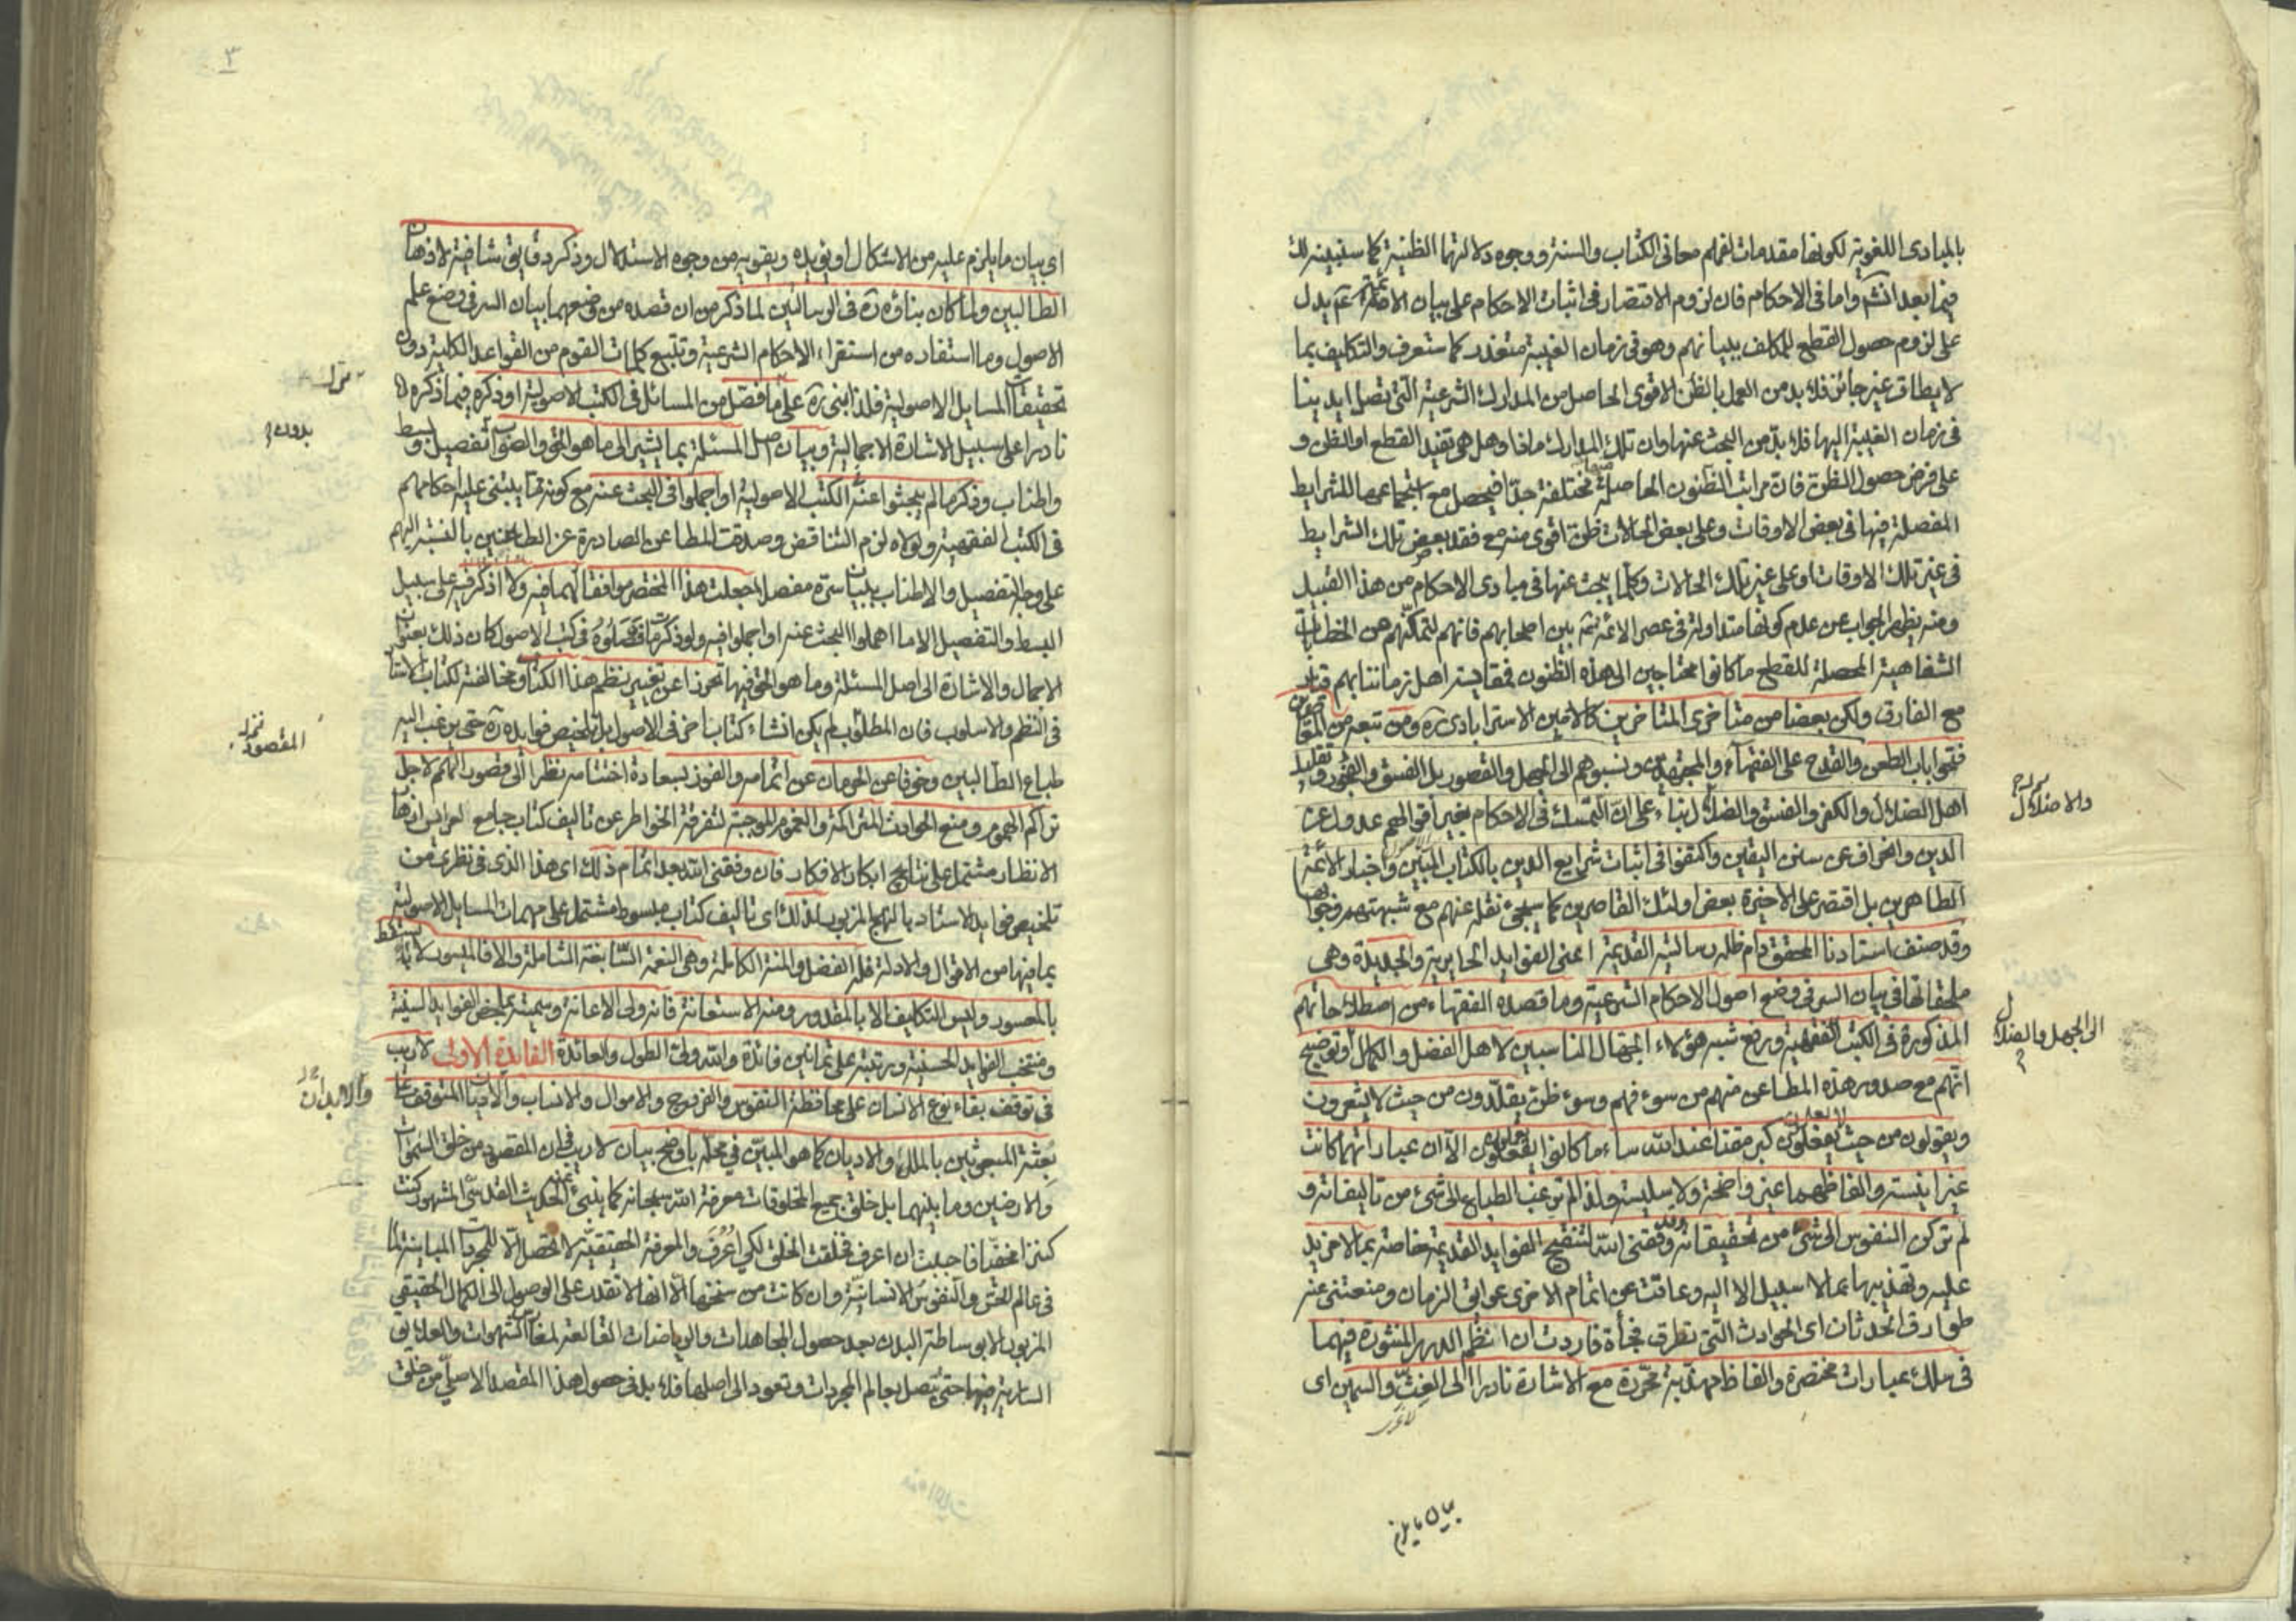 بالمبادى اللغوية لكونها مقدمات لفهم معانى الكتاب والسنة ووجوه دلالتها الظنية كما سنبينه لك
فيما بعد انشه واما فى الاحكام فان لزوم الاقتصار فى اثبات الاحكام على بيان الائمة عم يدل
على لزوم حصول القطع للمكلف ببيانهم وهو فى زمان الغيبة متعذر كما ستعرف والتكليف بما
لا يطاق غير جائز فلا بد من العمل بالظن الاقوى الحاصل من المدارك الشرعية التى تصل ايدينا
فى زمان الغيبة اليها فلا بد من البحث عنها وان تلك المدارك ماذا وهل هى تفيد القطع او الظن و
على فرض حصول الظن فان مراتب الظنون الحاصلة مختلفة جدا فيحصل مع اجتماعها للشرايط
المفصلة فيها فى بعض الاوقات وعلى بعض الحالات ظن اقوى منه مع فقد بعض تلك الشرايط
فى غير تلك الاوقات او على غير تلك الحالات وكلما يبحث عنها فى مبادى الاحكام من هذا القبيل
ومنه يظهر الجواب عن علم كونها متداولة فى عصر الائمة عم بين اصحابهم فانهم لتمكنهم من الخطابات
الشفاهية المحصلة للقطع ما كانوا محتاجين الى هذه الظنون فمقايسة اهل زماننا بهم قياس
مع الفارق ولكن بعضا من متاخرى المتاخرين كالامين الاسترابادى ره ومن تبعه من القاصرين
فتحوا باب الطعن والقدح على الفقهاء والمجتهدين ونسبوهم الى الجهل والقصور بل الفسق والفجور وتقليد
اهل الضلال والكفر والفسق والضلال بناء على ان التمسك فى الاحكام بغير اقوالهم عدول عن
الدين وانحراف عن سنن اليقين واكتفوا فى اثبات شرايع الدين بالكتاب المبين واخبار الائمة
الطاهرين بل اقتصر على الاخيرة بعض اولئك القاصرين كما سيجئ نقله عنهم مع شبهتهم وجوابها
وقد صنف استادنا المحقق دام ظله رسالتيه القديمة اعنى الفوايد الحايرية والجديدة وهى
ملحقاتها فى بيان السر فى وضع اصول الاحكام الشرعية وما قصده الفقهاء من اصطلاحاتهم
المذكورة فى الكتب الفقهية ورفع شبه هؤلاء الجهال الناسبين لاهل الفضل والكمال وتوضيح
انهم مع صدور هذه المطاعن منهم من سوء فهم وسوء ظن يقلدون من حيث لا يشعرون
ويقولون من حيث لا يعلمون كبر مقتا عند الله ساء ما كانوا يفعلون الا ان عباراتهما كانت
غير انيسة والفاظهما غير واضحة ولا سليسة ولذا لم ترغب الطباع الى شئ من تاليفاته و
لم تركن النفوس الى شئ من تحقيقاته وقد وفقنى الله لتنقيح الفوايد القديمة خاصة بما لا مزيد
عليه وتهذيبها بما لا سبيل الا اليه وعاقت عن اتمام الاخرى عوائق الزمان ومنعتنى عنه
طوارق الحدثان اى الحوادث التى تطرق فجأة فاردت ان انظم الدرر المنثورة فيهما
فى سلك عبارات مختصرة والفاظ مهذبة محررة مع الاشارة نادرا الى الغث والسمين اى
والاضلال
الى الجهل والضلال
بيان ما يلزم
٣
اى بيان ما يلزم عليه من الاشكال او يؤيده ويقويه من وجوه الاستدلال وذكر دقايق شافية لاذهان
الطالبين ولما كان بناؤه ره فى الرسالتين لما ذكر من ان قصده من وضعهما بيان السر فى وضع علم
الاصول وما استفاده من استقراء الاحكام الشرعية وتتبع كلمات القوم من القواعد الكلية دون
تحقيقات المسايل الاصولية فلذا بنى ره على ما فصل من المسائل فى الكتب الاصولية او ذكره فيما ذكره
نادرا على سبيل الاشارة الاجمالية وبيان اصل المسئلة بما يشير الى ما هو الحق والصواب تفصيل وبسط
واطناب وذكر ما لم يبحثوا عنه فى الكتب الاصولية او اجملوا فى البحث عنه مع كونه مما يبتنى عليه احكامهم
فى الكتب الفقهية ولولاه لزم التناقض وصدقت المطاعن الصادرة عن الطاعنين بالنسبة اليهم
على وجه التفصيل والاطناب ببيان سره مفصلا جعلت هذا المختصر موافقا لهما فيه ولا اذكر فيه على سبيل
البسط والتفصيل الا ما اهملوا البحث عنه او اجملوا فيه ولو ذكرت ما فصلوه فى كتب الاصول كان ذلك بعنوان
الاجمال والاشارة الى اصل المسئلة وما هو الحق فيها تحرزا عن تغيير نظم هذا الكتاب ومخالفته لكتاب الاستاد
فى النظم والاسلوب فان المطلوب لم يكن انشاء كتاب اخر فى الاصول بل تلخيص فوايده ره حتى يرغب اليه
طباع الطالبين وخوفا عن الحرمان عن اتمامه والفوز بسعادة اختتامه نظرا الى قصور الهمم لاجل
تراكم الهموم ومنع الحوادث المتراكثرة والغموم الموجبة لتفرقة الخواطر عن تاليف كتاب جامع لعرايس اذها
الانظار مشتمل على نتايج ابكار الافكار فان وفقنى الله بعد اتمام ذلك اى هذا الذى فى نظرى من
تلخيص فوايد الاستاد بالنهج المزبور لذلك اى تاليف كتاب مبسوط مشتمل على مهمات المسايل الاصولية
بما فيها من الاقوال والادلة فله الفضل والمنة الكاملة وهى النعمة السابغة الشاملة والا فالميسور لا يسقط
بالمعسور وليس التكليف الا بالمقدور ومنه الاستعانة فانه ولى الاعانة وسميته بملخص الفوايد السنية
ومنتخب الفوايد الحسينية ورتبته على ثمانين فائدة والله ولى الطول والعائدة الفايدة الاولى لا ريب
فى توقف بقاء نوع الانسان على محافظة النفوس والفروج والاموال والانساب والاديان المتوقفة على
بعثة المبعوثين بالملل والاديان كما هو المبين فى محله باوضح بيان لا ريب فى ان المقصود من خلق السموات
والارضين وما بينهما بل خلق جميع المخلوقات معرفة الله سبحانه كما ينبئ عنه الحديث القدسى المشهور كنت
كنزا مخفيا فاحببت ان اعرف فخلقت الخلق لكى اعرف والمعرفة الحقيقية لا تحصل الا للمجردات المباينة لما
فى عالم الحس والنفوس الانسانية وان كانت من سنخها الا انها لا تقدر على الوصول الى الكمال الحقيقى
المزبور الا بوساطة البدن بعد حصول المجاهدات والرياضات القالعة لمفاسد الشهوات والعلايق
السارية فيها حتى تتصل بعالم المجردات وتعود الى اصلها فلا بد فى حصول هذا المقصد الاصلى من خلق
بدون
المقصود
والابدان